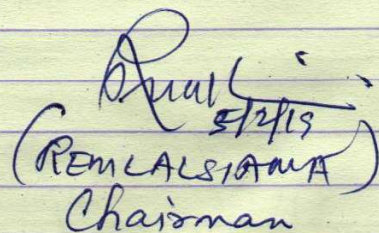 5/2/19
(REMLALSIAMA)
Chairman